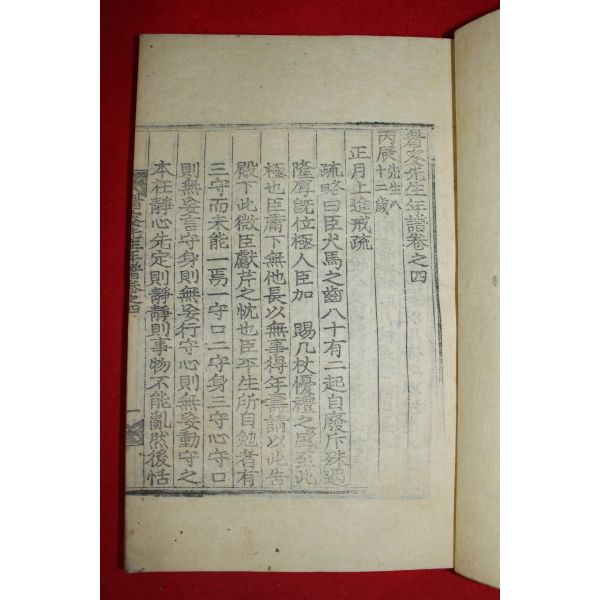 眉叟先生年譜卷之四
丙辰先生八十二歲
正月上進戒疏
疏略曰臣犬馬之齒八十有二起自廢斥殊遇
隆厚旣位極人臣加 賜几杖優禮之盛至此
極也臣肅下無他長以無事得年壽請以此告
殿下此微臣獻芹之忱也臣平生所自勉者有
三守而未能一焉一守口二守身三守心守口
則無妄言守身則無妄行守心則無妄動守之
本在靜心先定則靜靜則事物不能亂然後恬
眉叟先生年譜卷之四 一